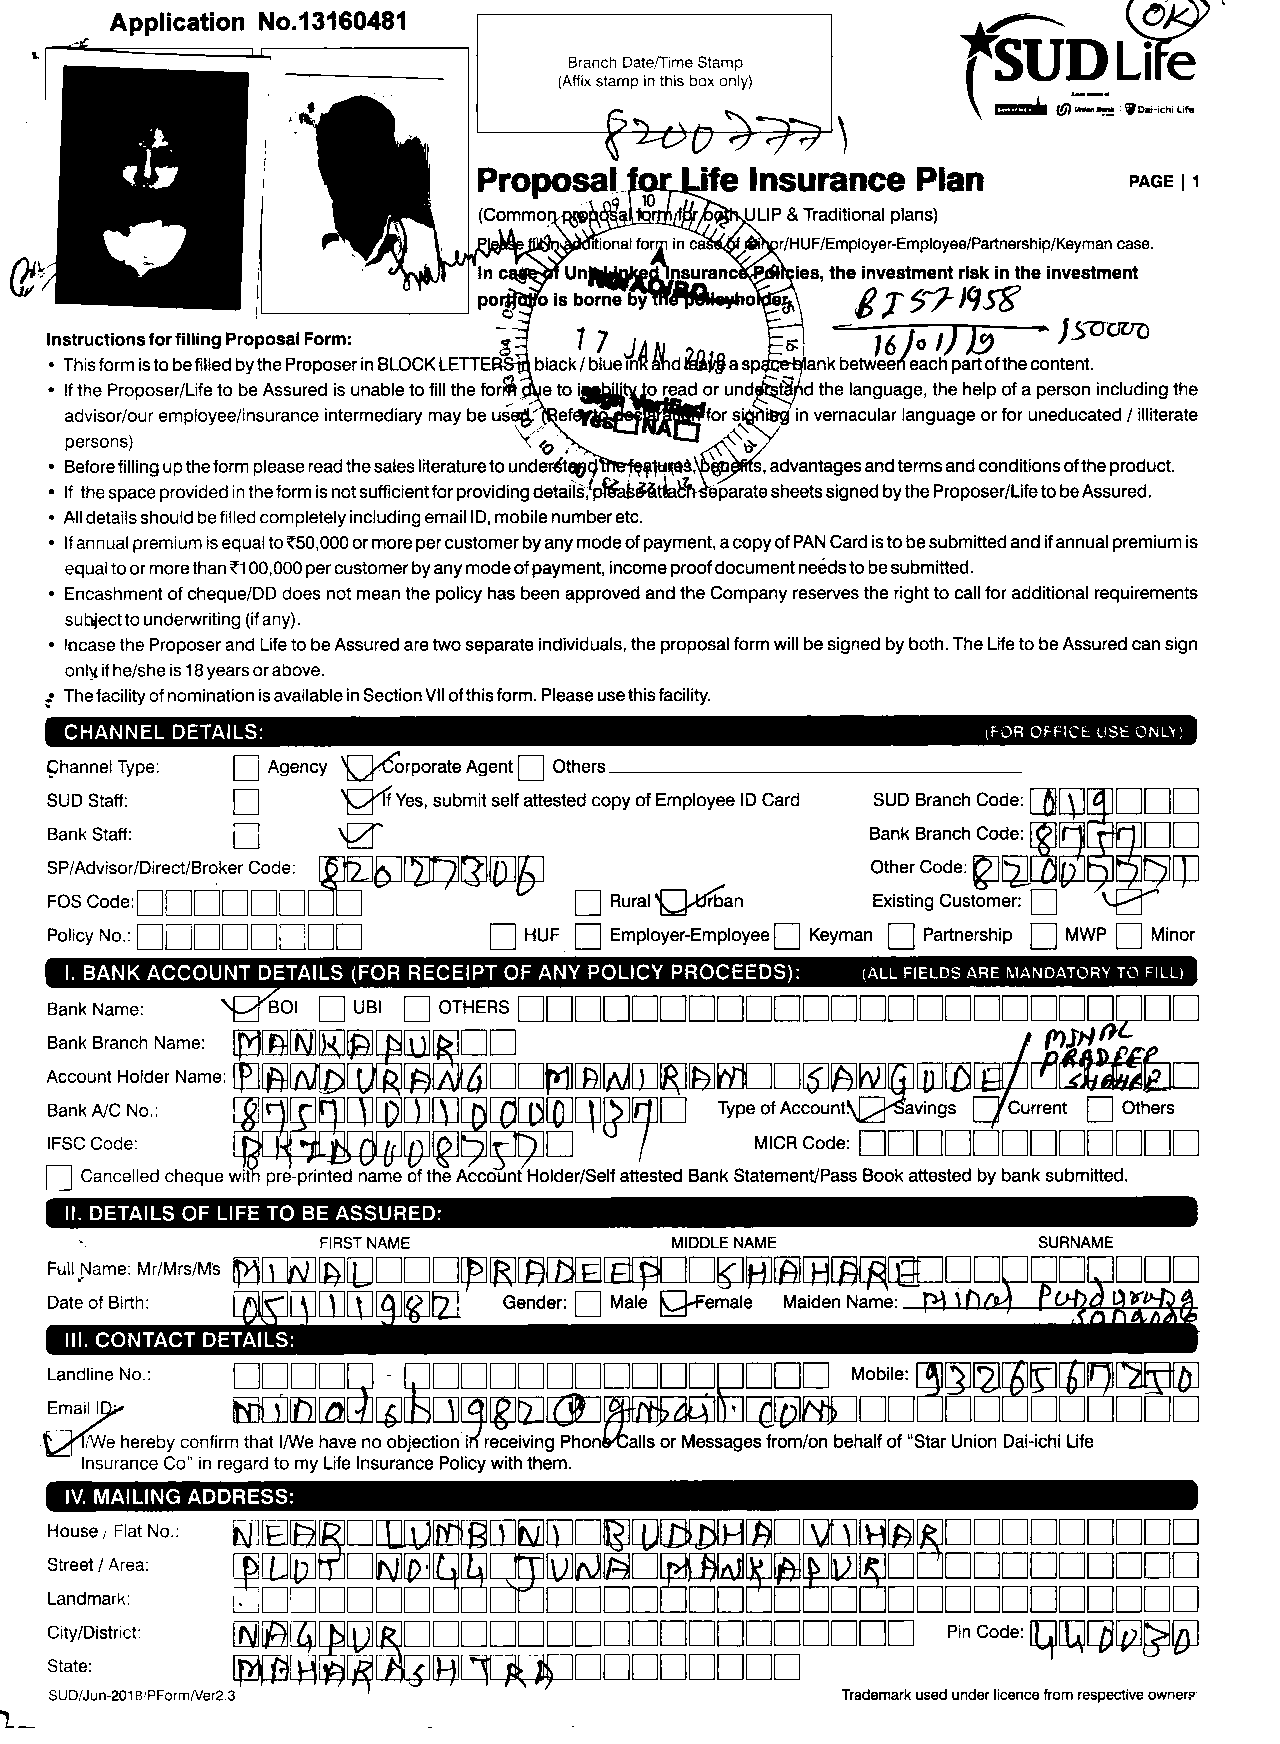 Application No.13160481
OK
Branch Date/Time Stamp
(Affix stamp in this box only)
SUD Life
Union Bank Dai-ichi Life
82007771
Proposal for Life Insurance Plan
PAGE | 1
(Common proposal form for both ULIP & Traditional plans)
Please fill in additional form in case of Minor/HUF/Employer-Employee/Partnership/Keyman case.
In case of Unit Linked Insurance Policies, the investment risk in the investment
portfolio is borne by the policyholder.
BI 571958
16/01/19
150000
17 JAN 2019
Sign Verified
Yes NA
Instructions for filling Proposal Form:
• This form is to be filled by the Proposer in BLOCK LETTERS in black / blue ink and leave a space blank between each part of the content.
• If the Proposer/Life to be Assured is unable to fill the form due to inability to read or understand the language, the help of a person including the
advisor/our employee/insurance intermediary may be used. (Refer to declaration for signing in vernacular language or for uneducated / illiterate
persons)
• Before filling up the form please read the sales literature to understand the features, benefits, advantages and terms and conditions of the product.
• If the space provided in the form is not sufficient for providing details, please attach separate sheets signed by the Proposer/Life to be Assured.
• All details should be filled completely including email ID, mobile number etc.
• If annual premium is equal to ₹50,000 or more per customer by any mode of payment, a copy of PAN Card is to be submitted and if annual premium is
equal to or more than ₹100,000 per customer by any mode of payment, income proof document needs to be submitted.
• Encashment of cheque/DD does not mean the policy has been approved and the Company reserves the right to call for additional requirements
subject to underwriting (if any).
• Incase the Proposer and Life to be Assured are two separate individuals, the proposal form will be signed by both. The Life to be Assured can sign
only if he/she is 18 years or above.
• The facility of nomination is available in Section VII of this form. Please use this facility.
CHANNEL DETAILS: (FOR OFFICE USE ONLY)
Channel Type: Agency Corporate Agent Others
SUD Staff: If Yes, submit self attested copy of Employee ID Card SUD Branch Code: 019
Bank Staff: Bank Branch Code: 8757
SP/Advisor/Direct/Broker Code: 82027306 Other Code: 82007771
FOS Code: Rural Urban Existing Customer:
Policy No.: HUF Employer-Employee Keyman Partnership MWP Minor
I. BANK ACCOUNT DETAILS (FOR RECEIPT OF ANY POLICY PROCEEDS): (ALL FIELDS ARE MANDATORY TO FILL)
Bank Name: BOI UBI OTHERS
Bank Branch Name: MANKAPUR
Account Holder Name: PANDURANG MANIRAM SANGODE / MINAL PRADEEP SHAHARE
Bank A/C No.: 875710110000137 Type of Account: Savings Current Others
IFSC Code: BKID0008757 MICR Code:
Cancelled cheque with pre-printed name of the Account Holder/Self attested Bank Statement/Pass Book attested by bank submitted.
II. DETAILS OF LIFE TO BE ASSURED:
FIRST NAME MIDDLE NAME SURNAME
Full Name: Mr/Mrs/Ms MINAL PRADEEP SHAHARE
Date of Birth: 05111982 Gender: Male Female Maiden Name: Minal Pandurang Sangode
III. CONTACT DETAILS:
Landline No.: - Mobile: 9326567250
Email ID: minalsh1982@gmail.com
I/We hereby confirm that I/We have no objection in receiving Phone Calls or Messages from/on behalf of "Star Union Dai-ichi Life
Insurance Co" in regard to my Life Insurance Policy with them.
IV. MAILING ADDRESS:
House / Flat No.: NEAR LUMBINI BUDDHA VIHAR
Street / Area: PLOT NO.44 JUNA MANKAPUR
Landmark:
City/District: NAGPUR Pin Code: 440030
State: MAHARASHTRA
SUD/Jun-2018/PForm/Ver2.3
Trademark used under licence from respective owners